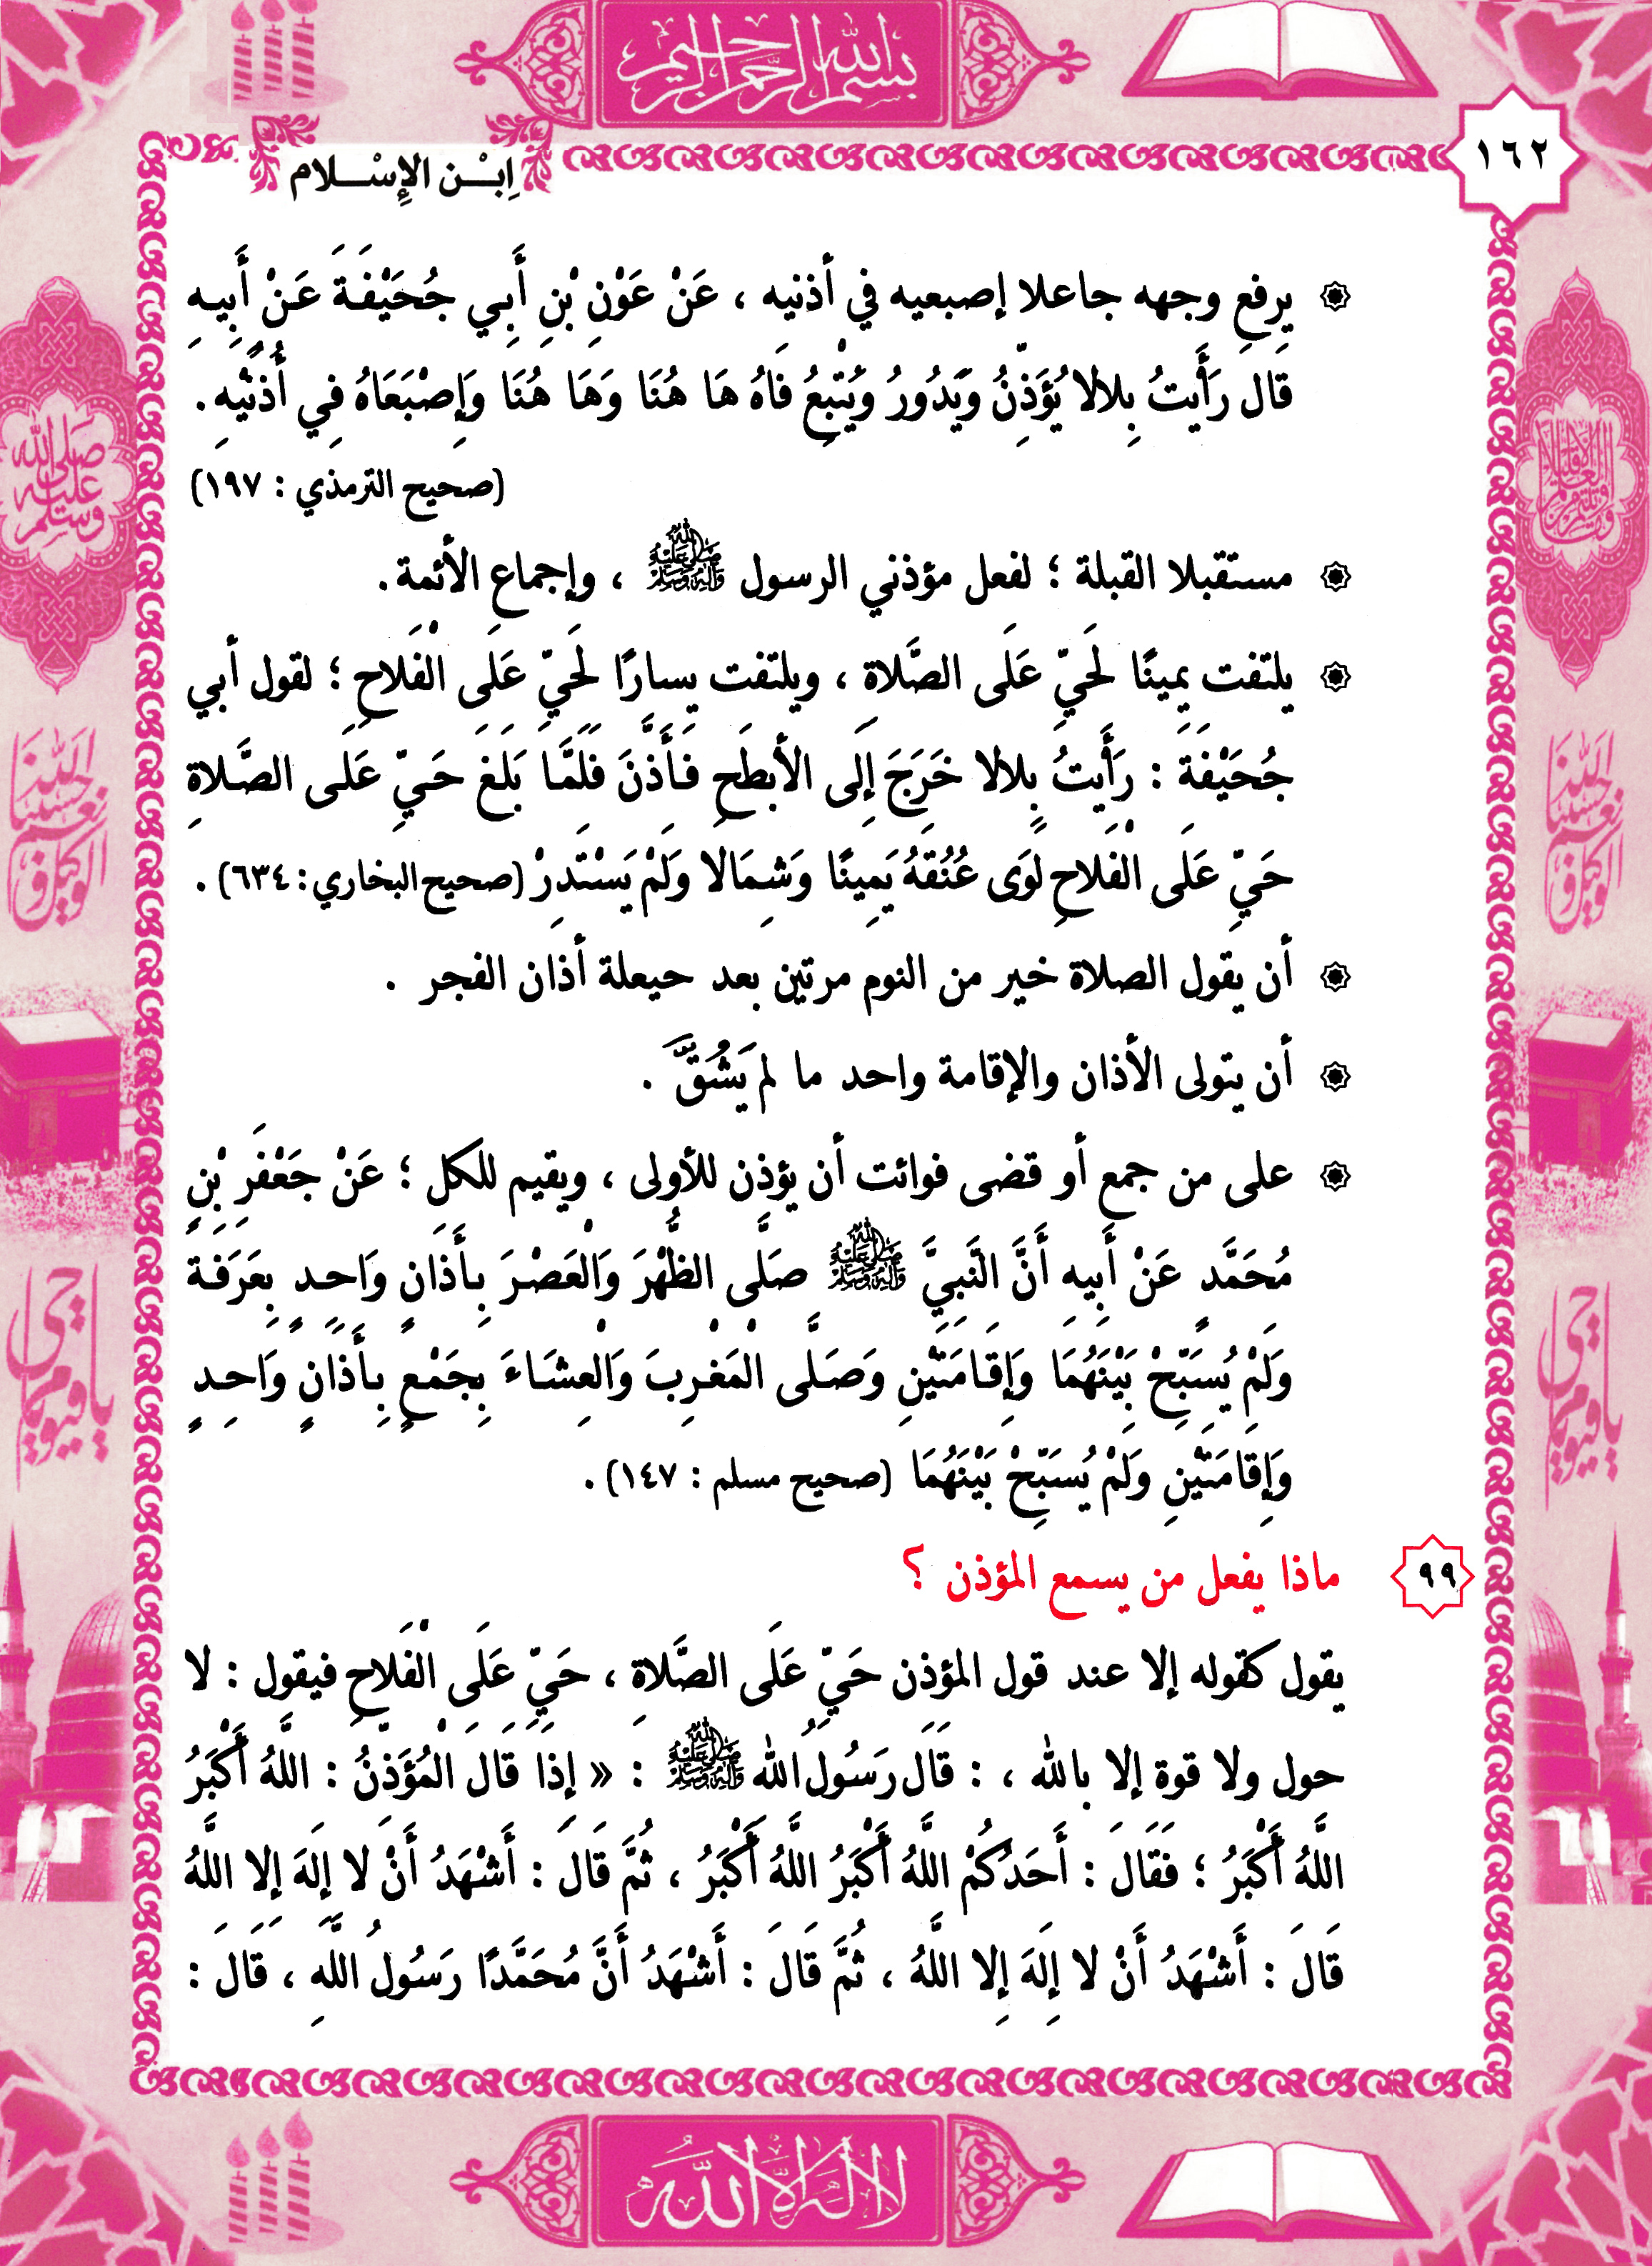 بسم الله الرحمن الرحيم
١٦٢
اِبْن الإِسْلام
يرفع وجهه جاعلا إصبعيه في أذنيه ، عَنْ عَوْنِ بْنِ أَبِي جُحَيْفَةَ عَنْ أَبِيهِ
قَال رَأَيتُ بِلالا يُؤَذِّنُ وَيَدُورُ وَيُتْبِعُ فَاهُ هَا هُنَا وَهَا هُنَا وَإِصْبَعَاهُ فِي أُذُنَيْهِ .
(صحيح الترمذي : ١٩٧)
مستقبلا القبلة ؛ لفعل مؤذني الرسول ﷺ ، وإجماع الأئمة .
يلتفت يمينًا لَحَيِّ عَلَى الصَّلَاةِ ، ويلتفت يسارًا لَحَيِّ عَلَى الْفَلَاحِ ؛ لقول أبي
جُحَيْفَةَ : رَأَيتُ بِلالا خَرَجَ إِلى الأَبطَحِ فَأَذَّنَ فَلَمَّا بَلَغَ حَيِّ عَلَى الصَّلاةِ
حَيِّ عَلَى الْفَلاحِ لَوَى عُنُقَهُ يَمِينًا وَشِمَالًا وَلَمْ يَسْتَدِرْ (صحيح البخاري : ٦٣٤) .
أن يقول الصلاة خير من النوم مرتين بعد حيعلة أذان الفجر .
أن يتولى الأذان والإقامة واحد ما لم يَشُقَّ .
على من جمع أو قضى فوائت أن يؤذن للأولى ، ويقيم للكل ؛ عَنْ جَعْفَرِ بْنِ
مُحَمَّدٍ عَنْ أَبِيهِ أَنَّ النَّبِيَّ ﷺ صَلَّى الظُّهْرَ وَالْعَصْرَ بِأَذَانٍ وَاحِدٍ بِعَرَفَةَ
وَلَمْ يُسَبِّحْ بَيْنَهُمَا وَإِقَامَتَيْنِ وَصَلَّى الْمَغْرِبَ وَالْعِشَاءَ بِجَمْعٍ بِأَذَانٍ وَاحِدٍ
وَإِقَامَتَيْنِ وَلَمْ يُسَبِّحْ بَيْنَهُمَا (صحيح مسلم : ١٤٧) .
٩٩ ماذا يفعل من يسمع المؤذن ؟
يقول كقوله إلا عند قول المؤذن حَيِّ عَلَى الصَّلَاةِ ، حَيِّ عَلَى الْفَلَاحِ فيقول : لا
حول ولا قوة إلا بالله ، : قَالَ رَسُولُ الله ﷺ : « إِذَا قَالَ الْمُؤَذِّنُ : اللَّهُ أَكْبَرُ
اللَّهُ أَكْبَرُ ؛ فَقَالَ : أَحَدُكُمْ اللَّهُ أَكْبَرُ اللَّهُ أَكْبَرُ ، ثُمَّ قَالَ : أَشْهَدُ أَنْ لا إِلَهَ إِلا اللَّهُ
قَالَ : أَشْهَدُ أَنْ لا إِلَهَ إِلا اللَّهُ ، ثُمَّ قَالَ : أَشْهَدُ أَنَّ مُحَمَّدًا رَسُولُ اللَّهِ ، قَالَ :
صلى الله عليه وسلم
حسبنا الله ونعم الوكيل
يا حي يا قيوم
لا إله إلا الله